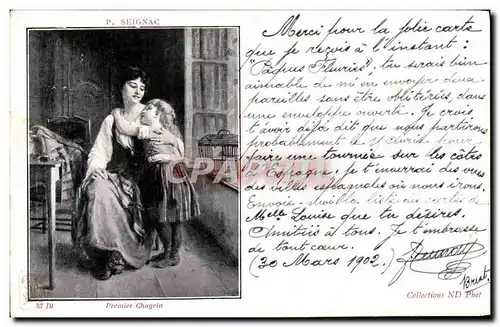 P. SEIGNAC
Merci pour la jolie carte
que je reçois à l'instant :
"Pâques Fleuries"; tu serais bien
aimable de m'en envoyer deux
pareilles sans être oblitérées, dans
une enveloppe ouverte. Je crois
t'avoir déjà dit que nous partirons
probablement le
faire une tournée sur les côtes
d'Espagne; je t'enverrai des vues
des villes espagnoles où nous irons.
Envoie- la liste des cartes de
Melle Louise que tu désires.
Amitiés à tous. Je t'embrasse
de tout cœur.
(30 Mars 1902.)
Brest.
83 Dt
Premier Chagrin
Collections ND Phot